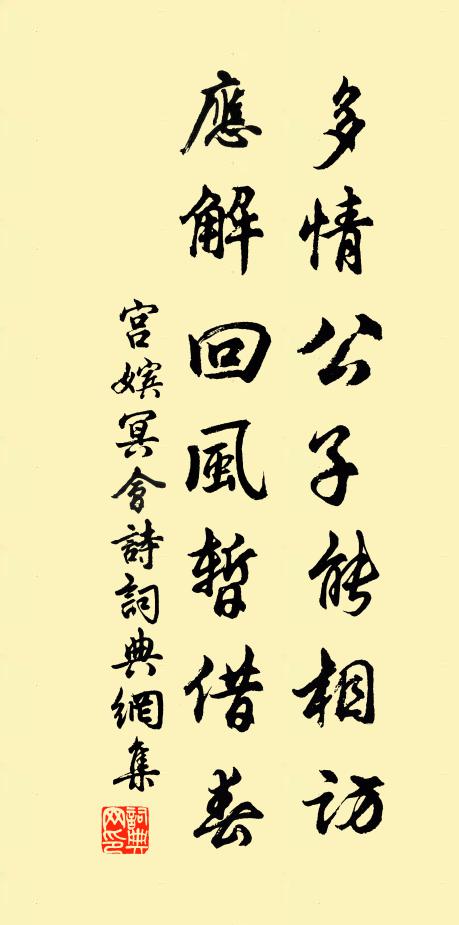 多情公子能相訪
應解回風暫借春
宮嬪冥會詩詞典網集
詞典網印